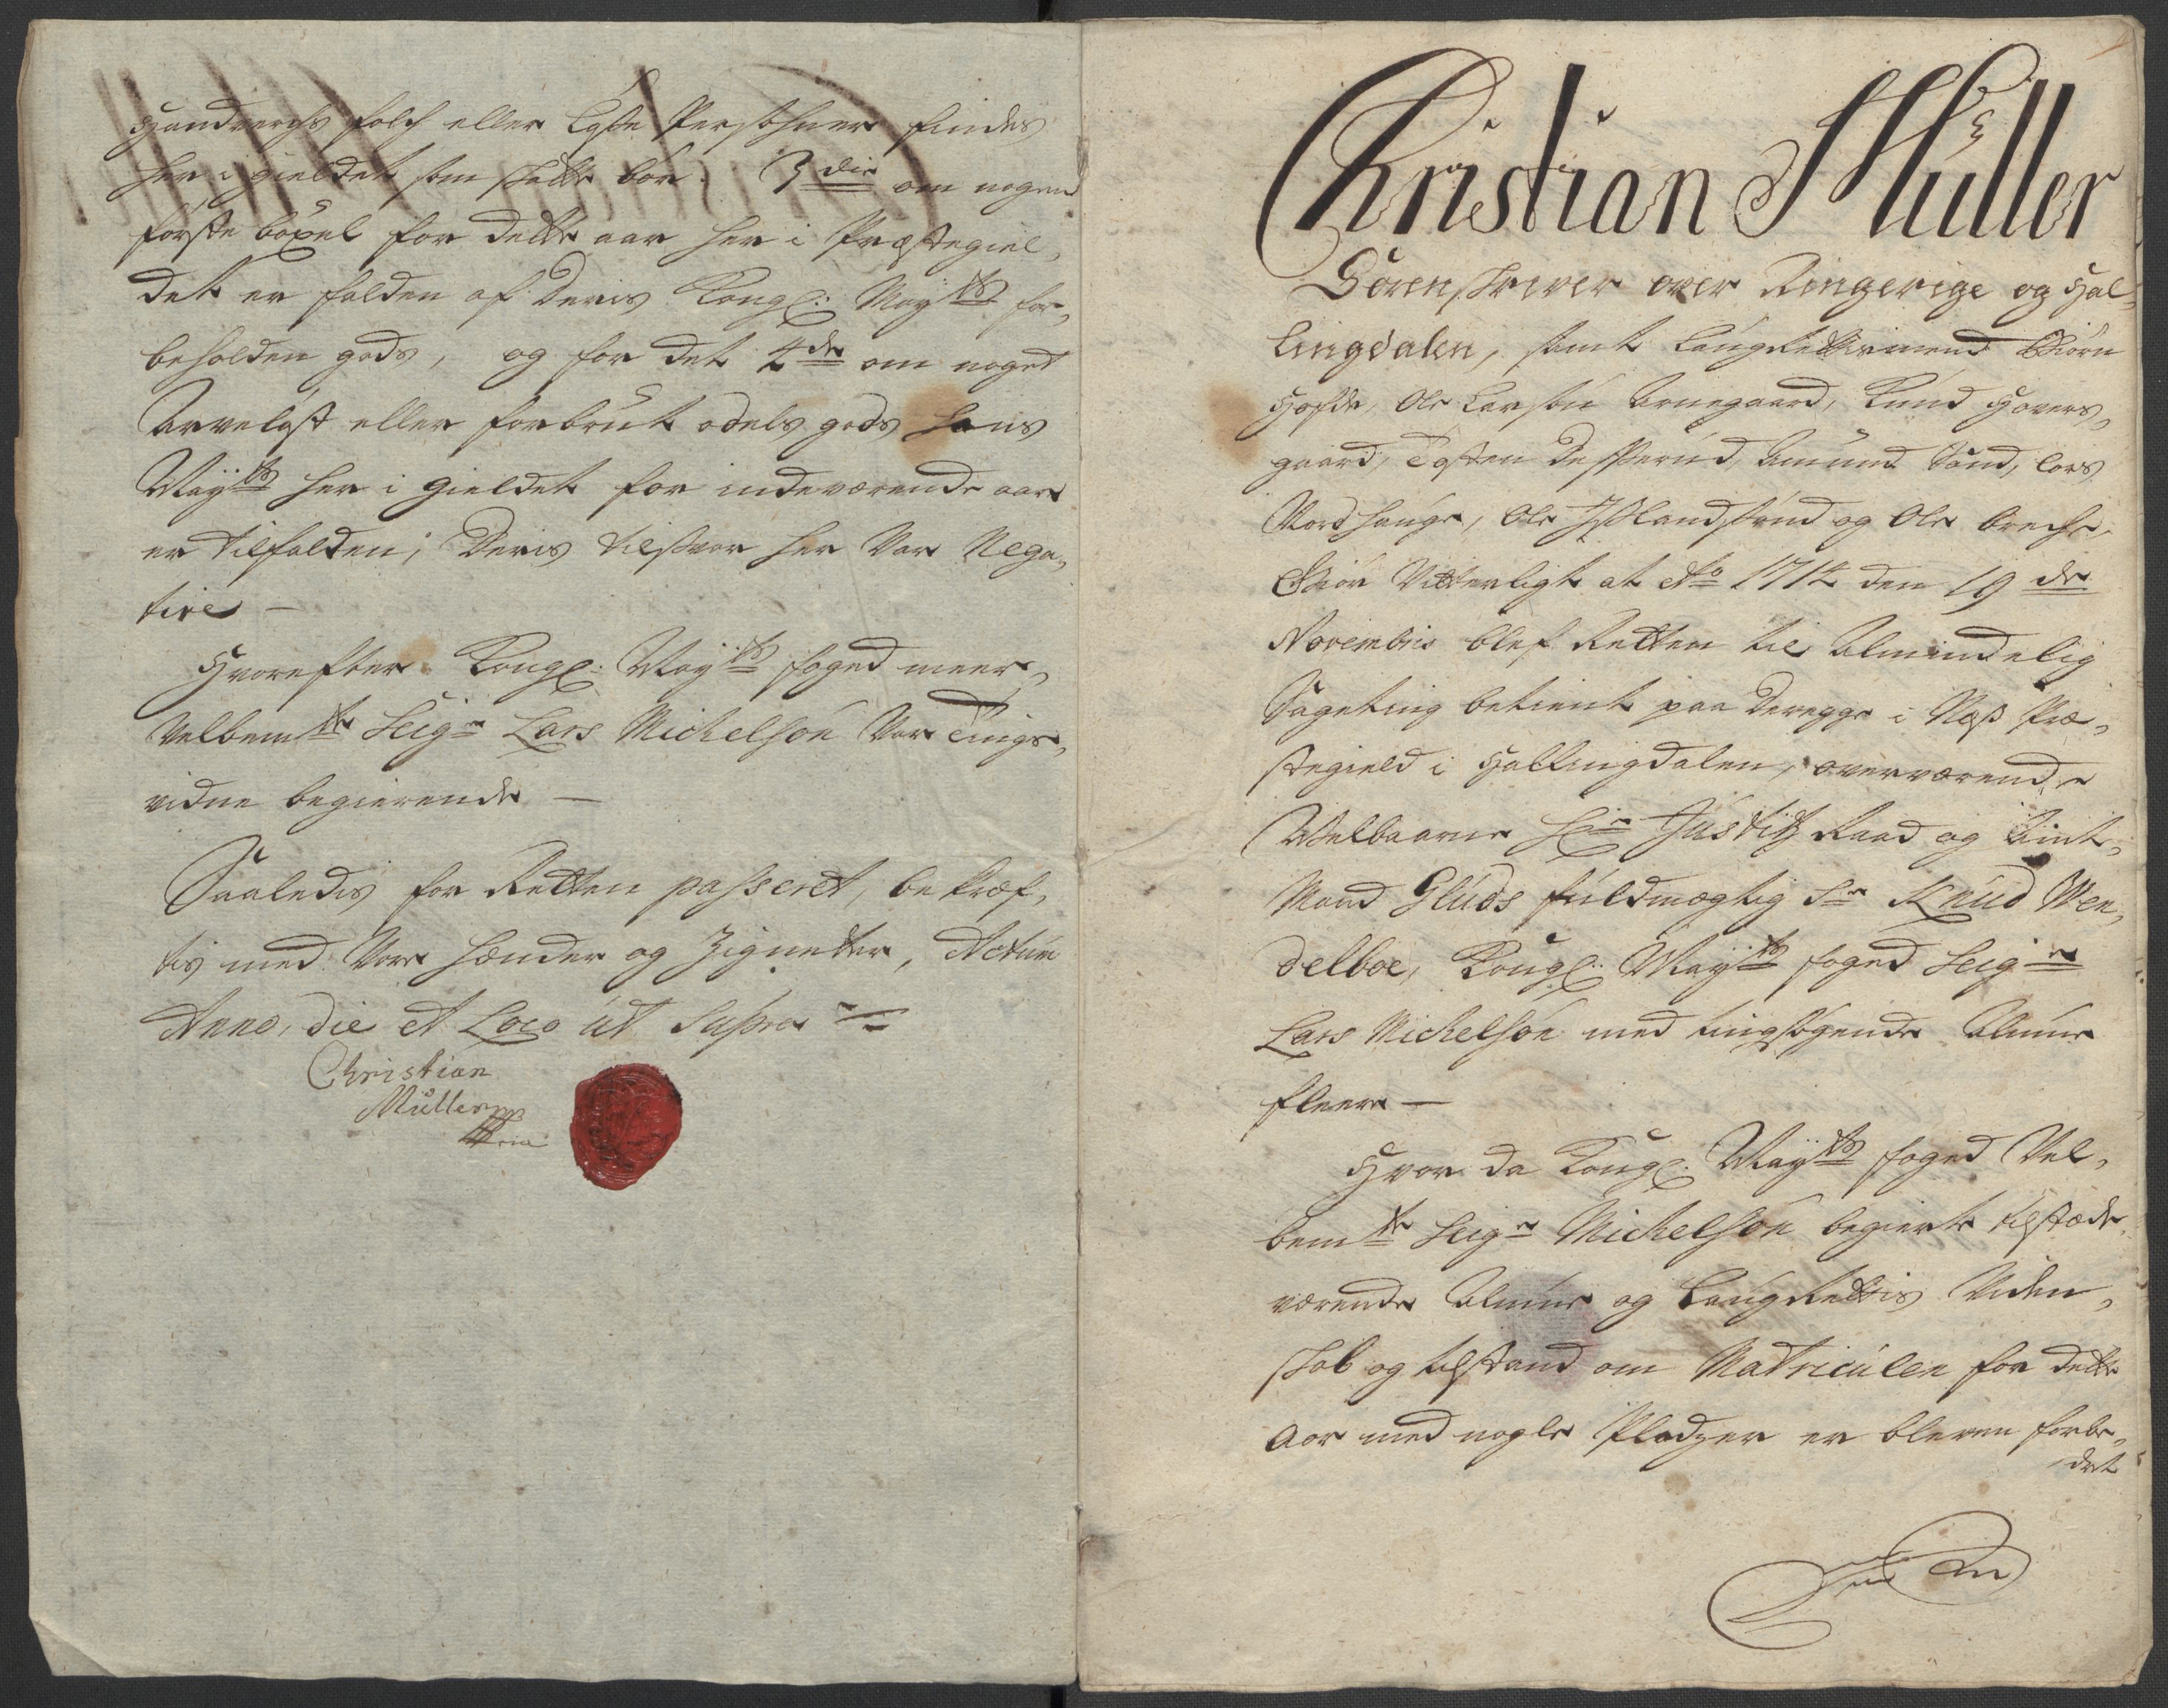 Handverchs folch eller løse Persohner findes
her i gieldet som schatte bør. 3die om nogen
første böxel for dette aar her i Præstegiel,
det er falden af Deris Kongl: Mayts for,
beholden gods, og for det 4de om noget
Arveløst eller forbrut odels gods hans
Mayts her i gieldet for indeværende aar
er tilfalden; Deris tilsvar her Var Nega,
tive —
Hvorefter Kongl: Mayts foged meer,
Velbemte Seigr Lars Michelsøn Var Tings,
vidne begierende —
Saaledis for Retten passeret, bekræf,
tis med Vore hænder og Zignetter, Actum
Anno, die et Loco ut Supra
Christian
Müller mpp
ria
Christian Müller
Sorenskriver over Ringerige og Hal,
lingdalen, samt Laugrettismend Biørn
Hofde, Ole Larsøn Brunegaard, Knud Hovers,
gaard, Tosten Desserud, Amund Sand, Lars
Nordhauge, Ole Islandsrud og Ole Breche
Giør Vitterligt at Ao 1714 den 19de
Novembris blef Retten til Almindelig
Sageting betient paa Deregge i Næss Præ,
stegield i Hallingdalen, overværende
Welbaarne Hr Justitz Raad og Amt,
Mand Gluds fuldmægtig Sr Knud Wen,
delboe, Kongl: Mayts foged Seigr
Lars Michelsøn med tingsøgende Almue
fleere —
Hvor da Kongl: Mayts foged Vel,
bemte Seigr Michelsøn begierte tilstæde
værende Almue og Laugrettis Viden,
schab og tilstand om Matriculen for dette
Aar med nogle Pladzer er bleven forbe,
dret